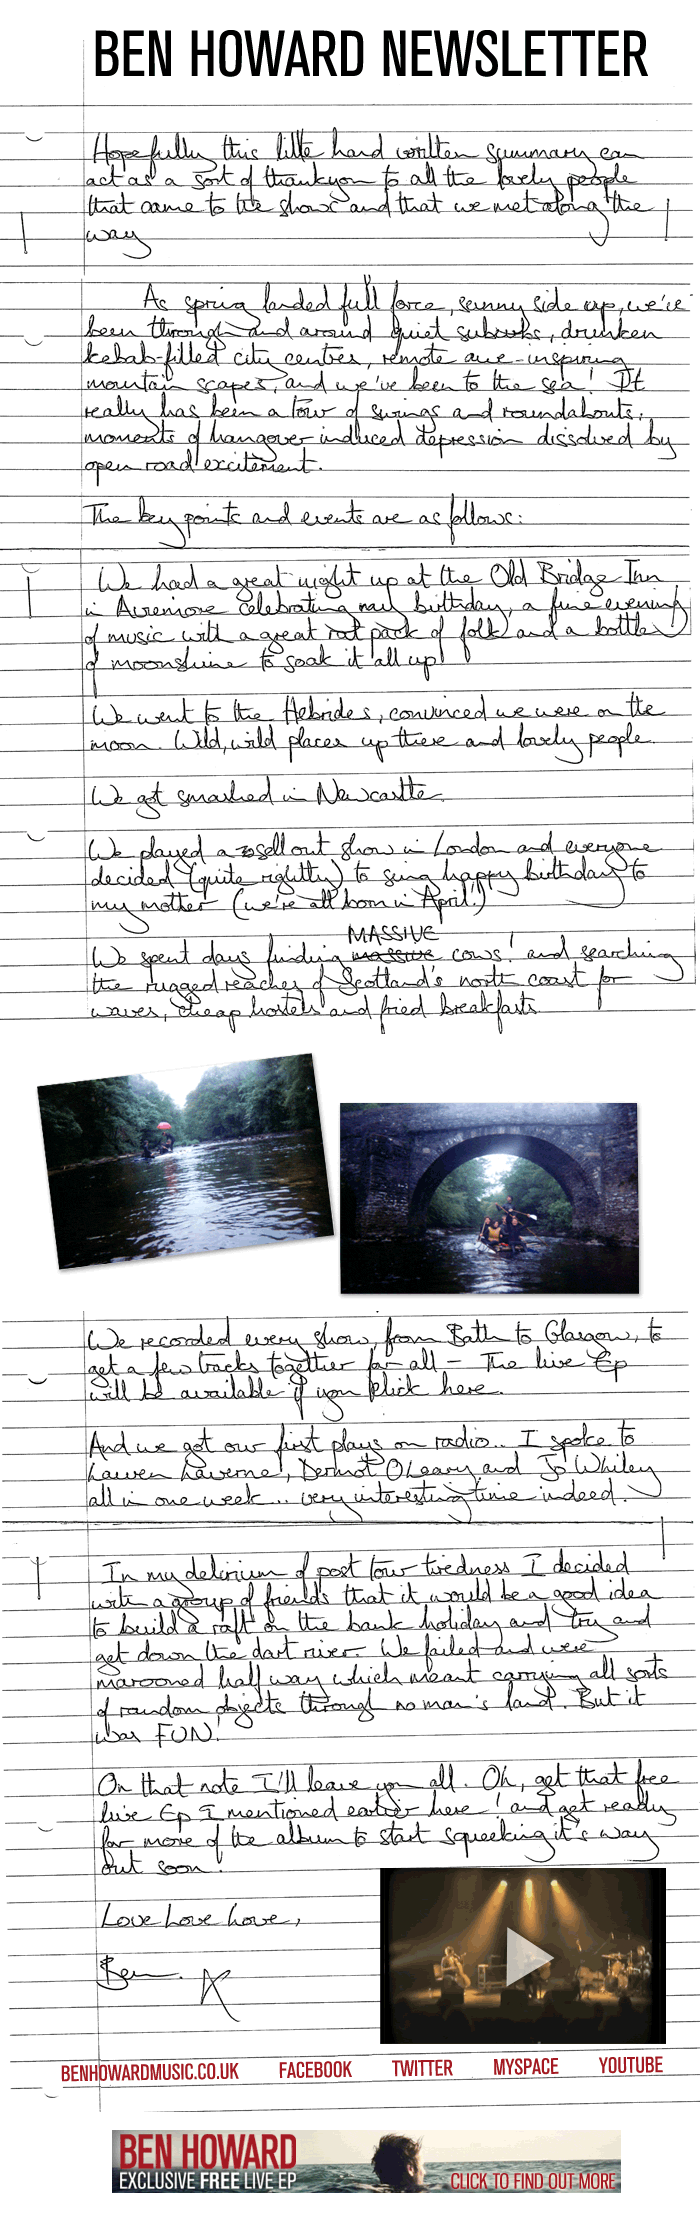 BEN HOWARD NEWSLETTER
Hopefully this little hand written summary can
act as a sort of thankyou to all the lovely people
that came to the shows and that we met along the
way
As spring landed full force, sunny side up, we've
been through and around quiet suburbs, drunken
kebab-filled city centres, remote awe-inspiring
mountain scapes, and we've been to the sea! It
really has been a tour of swings and roundabouts,
moments of hangover induced depression dissolved by
open road excitement.
The key points and events are as follows:
We had a great night up at the Old Bridge Inn
in Aviemore celebrating my birthday, a fine evening
of music with a great rat pack of folk and a bottle
of moonshine to soak it all up!
We went to the Hebrides, convinced we were on the
moon. Wild, wild places up there and lovely people.
We got smashed in Newcastle.
We played a sell out show in London and everyone
decided (quite rightly) to sing happy birthday to
my mother (we're all born in April!)
MASSIVE
We spent days finding massive cows! and searching
the rugged reaches of Scotland's north coast for
waves, cheap hostels and fried breakfasts
We recorded every show, from Bath to Glasgow, to
get a few tracks together for all - The live Ep
will be available if you klick here.
And we got our first plays on radio.. I spoke to
Lauren Laverne, Dermot O'Leary and Jo Whiley
all in one week... very interesting time indeed.
In my delirium of post tour tiredness I decided
with a group of friends that it would be a good idea
to build a raft on the bank holiday and try and
get down the dart river. We failed and were
marooned half way which meant carrying all sorts
of random objects through no man's land. But it
was FUN!
On that note I'll leave you all. Oh, get that free
live Ep I mentioned earlier here! and get ready
for more of the album to start squeeking it's way
out soon!
Love Love Love,
Ben. X
BENHOWARDMUSIC.CO.UK FACEBOOK TWITTER MYSPACE YOUTUBE
BEN HOWARD
EXCLUSIVE FREE LIVE EP CLICK TO FIND OUT MORE